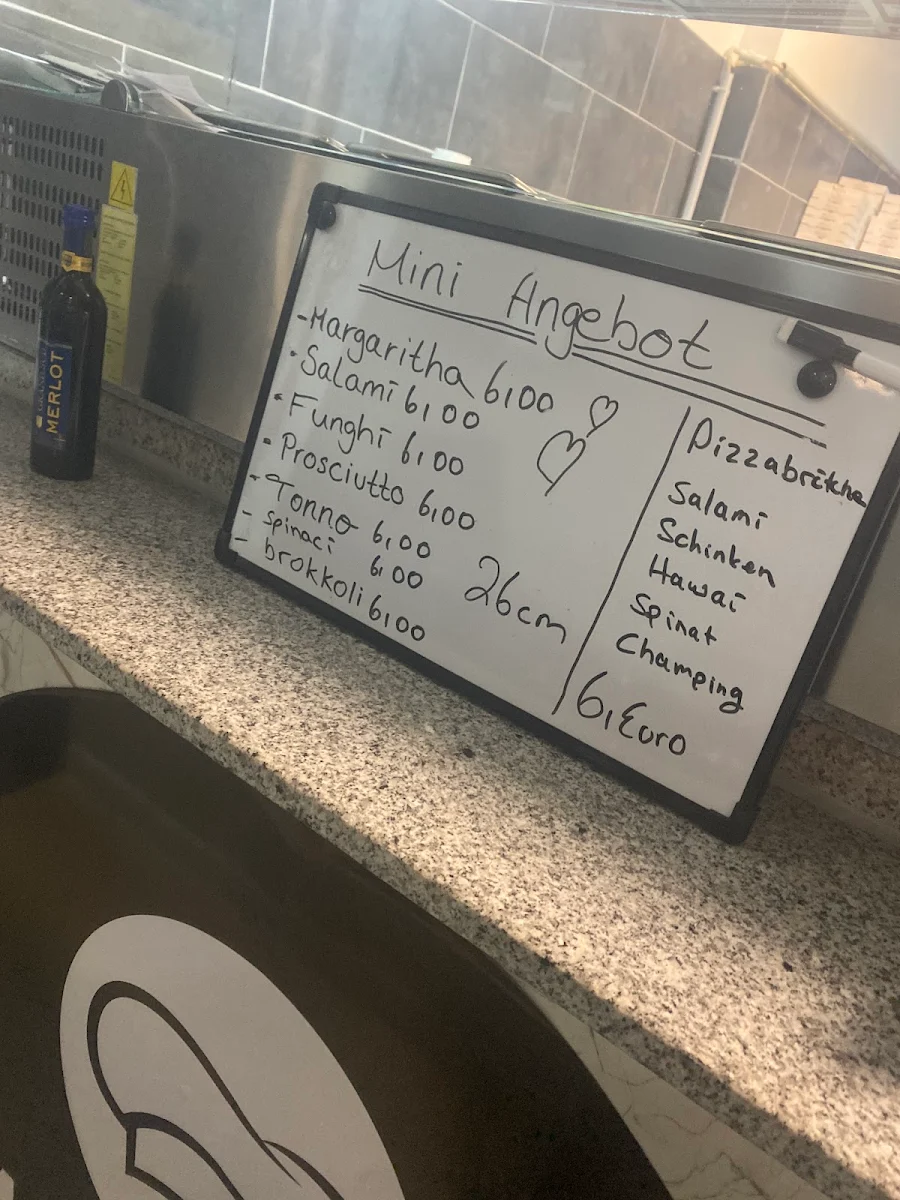 Mini Angebot
- Margaritha 6,00
· Salami 6,00
· Funghi 6,00
· Prosciutto 6,00
- Tonno 6,00
- Spinaci 6,00
- brokkoli 6,00
26cm
Pizzabrötche
Salami
Schinken
Hawai
Spinat
Champing
6,Euro
MERLOT